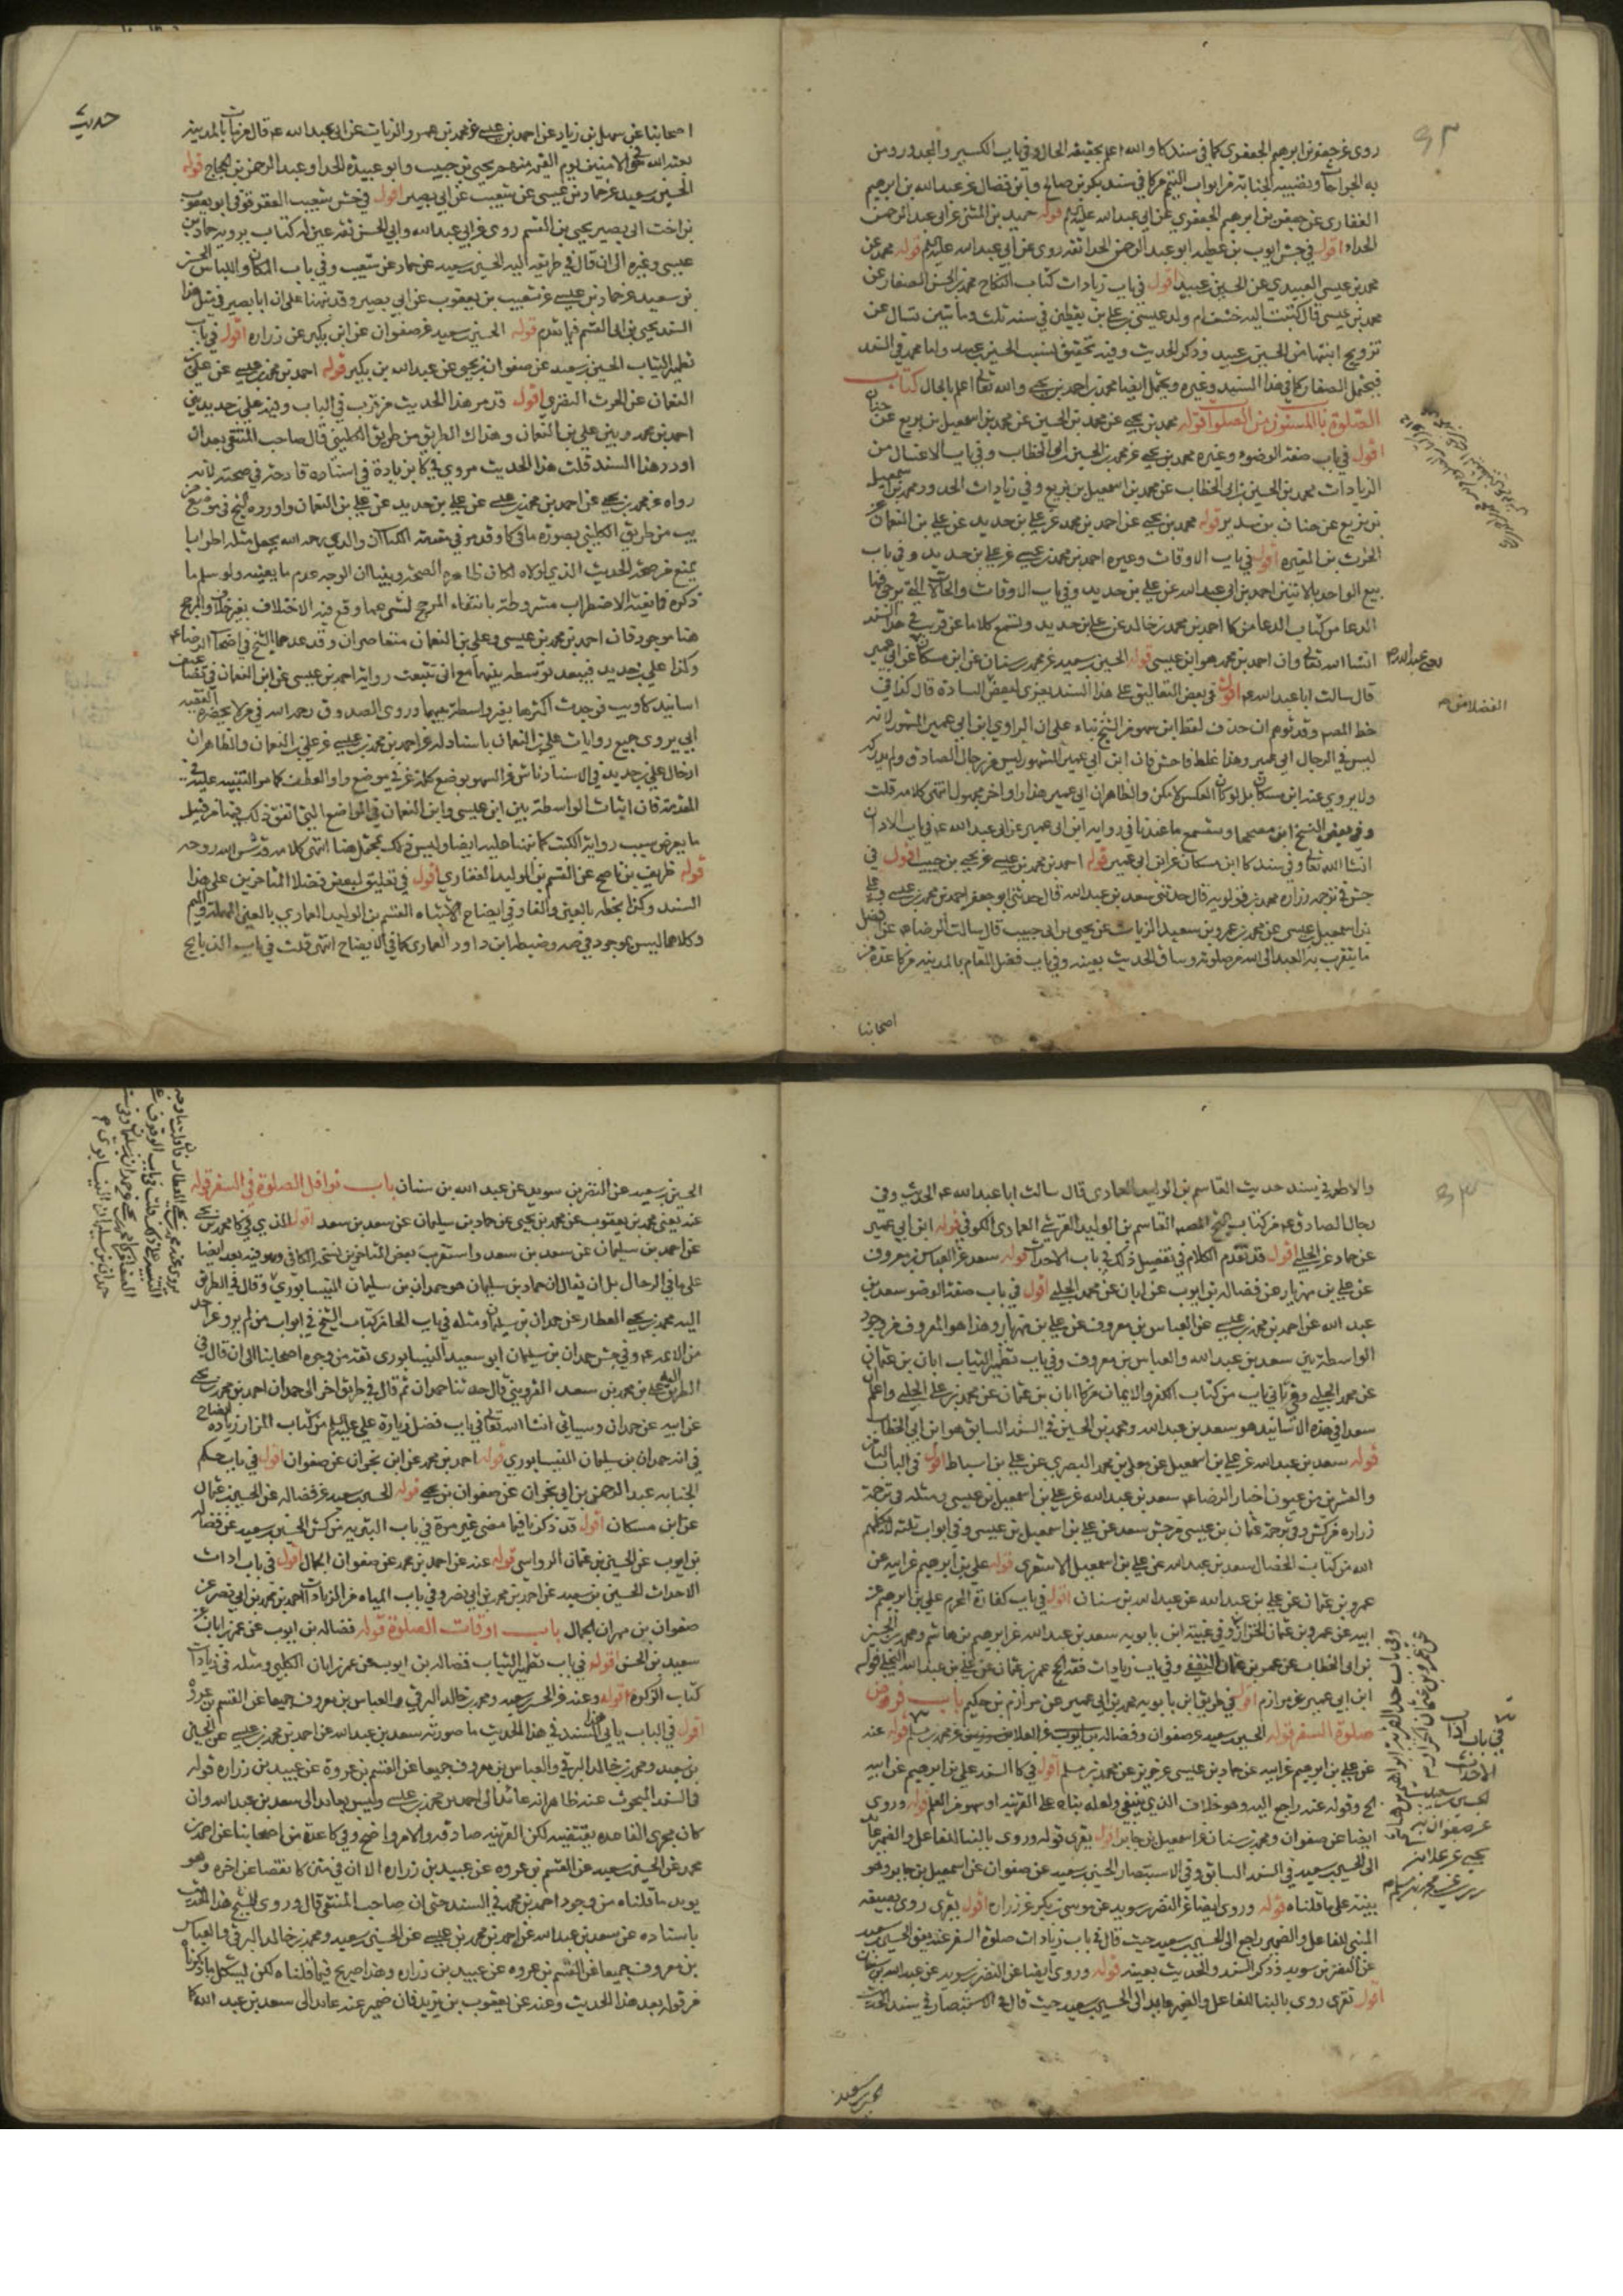 روى عن جعفر بن ابرهيم الجعفرى كما فى سند كا والله اعلم بحقيقة الحال وفى باب الكسير والمجدور ومن
به الجراحات وتصيبه الجنابة من ابواب التيمم من كا فى سند بكر بن صالح وابن فضال عن عبد الله بن ابرهيم
الغفارى عن جعفر بن ابرهيم الجعفرى عن ابى عبد الله عليه السلم قوله حميد بن المثنى عن ابى عبد الرحمن
الحداء اقول فى جش ايوب بن عطيه ابو عبد الرحمن الحداء ثقه روى عن ابى عبد الله عليه السلم قوله محمد عن
محمد بن عيسى العبيدى عن الحسين بن عبيد اقول فى باب زيادات كتاب النكاح محمد بن الحسن الصفار عن
محمد بن عيسى قال كتبت اليه خشف ام ولد عيسى بن على بن يقطين فى سنه ثلث ومأتين تسال عن
تزويج ابنتها من الحسين بن عبيد وذكر الحديث وفيه تحقيق لنسب الحسين بن عبيد واما محمد فى السند
فيحتمل الصفار كما فى هذا السند وغيره ويحتمل ايضا محمد بن احمد بن يحيى والله تعالى اعلم بالحال كتاب
الصلوة باب المسنون من الصلوات قوله محمد بن يحيى عن محمد بن الحسين عن محمد بن اسمعيل بن بزيع عن حنان
اقول فى باب صفة الوضوء وغيره محمد بن يحيى عن محمد بن الحسين بن ابى الخطاب وفى باب الاغتسال من
الزيادات محمد بن الحسين بن ابى الخطاب عن محمد بن اسمعيل بن بزيع وفى زيادات الحدود محمد بن اسمعيل
بن بزيع عن حنان بن سدير قوله محمد بن يحيى عن احمد بن محمد عن على بن حديد عن على بن النعمان عن
الحرث بن المغيره اقول فى باب الاوقات وغيره احمد بن محمد بن عيسى عن على بن حديد وفى باب
بيع الواحد بالاثنين احمد بن ابى عبد الله عن على بن حديد وفى باب الاوقات والحالات التى يرجى فيها
الدعا من كتاب الدعا من كا احمد بن محمد بن خالد عن على بن حديد وتسمع كلاما عن قريب فى هذا السند
انشا الله تعالى وان احمد بن محمد هو ابن عيسى قوله الحسين بن سعيد عن محمد بن سنان عن ابن مسكان عن ابى عمير
قال سالت ابا عبد الله ع اقول فى بعض التعاليق على هذا السند يعزى لبعض السادة قال كذا فى
خط المصـ وقد توهم ان حذف لفظ ابن سهو من الشيخ بناء على ان الراوى ابن ابى عمير المشهور لانه
ليس فى الرجال ابى عمير وهذا غلط فاحش فان ابن ابى عمير المشهور ليس من رجال الصادق ولم يدركه
ولا يروى عنه ابن مسكان بل لو كان العكس لامكن والظاهر ان ابى عمير هذا راو اخر مجهول انتهى كلامه قلت
وفى بعض النسخ ابن مصححا وستسمع ما عندنا فى رواية ابن ابى عمير عن ابى عبد الله ع فى باب الاذان
انشا الله تعالى وفى سند كا ابن مسكان عن ابن ابى عمير قوله احمد بن محمد بن عيسى عن يحيى بن حبيب اقول فى
جش فى ترجمة زراره محمد بن قولويه قال حدثنى سعد بن عبد الله قال حدثنى ابو جعفر احمد بن محمد بن عيسى وعلى
بن اسمعيل بن عيسى عن محمد بن عمرو بن سعيد الزيات عن يحيى بن ابى حبيب قال سالت الرضا ع عن افضل
ما يتقرب به العبد الى الله من صلوته وساق الحديث بعينه وفى باب فضل المقام بالمدينه من كا عدة من
اصحابنا
حديث
اصحابنا عن سهل بن زياد عن احمد بن عيسى عن محمد بن عمرو الزيات عن ابى عبد الله ع قال من مات بالمدينه
بعثه الله فى الامنين يوم القيمه منهم يحيى بن حبيب وابو عبيدة الحداء وعبد الرحمن بن الحجاج قوله
الحسين بن سعيد عن حماد بن عيسى عن شعيب عن ابى بصير اقول فى جش شعيب العقرقوفى ابو يعقوب
بن اخت ابى بصير يحيى بن القسم روى عن ابى عبد الله وابى الحسن ثقه عين له كتاب يرويه حماد بن
عيسى وغيره الى ان قال فى طريقه اليه الحسين بن سعيد عن حماد عن شعيب وفى باب المكان واللباس الحسين
بن سعيد عن حماد بن عيسى عن شعيب بن يعقوب عن ابى بصير وقد نبهنا على ان ابا بصير فى مثل هذا
السند يحيى بن ابى القسم فيما تقدم قوله الحسين بن سعيد عن صفوان عن ابن بكير عن زراره اقول فى باب
تطهير الثياب الحسين بن سعيد عن صفوان بن يحيى عن عبد الله بن بكير قوله احمد بن محمد بن عيسى عن على بن
النعمان عن الحرث النضرى اقول قد مر هذا الحديث عن قرب فى الباب وفيه على بن حديد بين
احمد بن محمد وبين على بن النعمان وهذاك الطريق من طريق الكلينى قال صاحب المنتقى بعد ان
اورد هذا السند قلت هذا الحديث مروى فى كا بزيادة فى اسناده قادحة فى صحته لانه
رواه عن محمد بن يحيى عن احمد بن محمد بن عيسى عن على بن حديد عن على بن النعمان واورده الشيخ فى موضع من
يب من طريق الكلينى بصورة ما فى كا وقد مر فى مقدمة الكتاب ان والدى رحمه الله يجعل مثله اضطرابا
يمنع من صحة الحديث الذى لولاه لكان ظاهره الصحة وبينا ان الوجه عدم ما يعينه ولو سلم ما
ذكره فمانعية الاضطراب مشروطة بانتفاء المرجح لشى مما وقع فيه الاختلاف بغير خلاف والمرجح
هنا موجود فان احمد بن محمد بن عيسى وعلى بن النعمان متعاصران وقد عدهما الشيخ فى اصحاب الرضا ع
وكذا على بن حديد فيبعد توسطه بينهما مع انى تتبعت رواية احمد بن عيسى عن ابن النعمان فى تضاعيف
اسانيد كا ويب فوجدت اكثرها بغير واسطة بينهما وروى الصدوق رحمه الله فى من لا يحضره الفقيه
ابى يروى جميع روايات على بن النعمان باسناد له عن احمد بن محمد بن عيسى عن على بن النعمان والظاهر ان
ادخال على بن حديد فى الاسناد ناش من السهو بوضع كلمة عن فى موضع واو العطف كما مر التنبيه عليه فى
المقدمة فان اثبات الواسطة بين ابن عيسى وابن النعمان فى المواضع التى اتفق ذلك فيها من قبيل
ما يعرض بسبب رواية الكتب كما نبهنا عليه ايضا وليس ذلك بمحتمل هنا انتهى كلامه قدس الله روحه
قوله ظريف بن ناصح عن القسم بن الوليد الغفارى اقول فى تعليق لبعض فضلا المتاخرين على هذا
السند وكذا بخطه بالغين والفاء وفى ايضاح الاشتباه القسم بن الوليد العمارى بالعين المهملة والميم
وكلاهما ليس بموجود فى ضد وضبط ابن داود العمارى كما فى الايضاح انتهى قلت فى باب الذبايح
والاطعمه فى سند حديث القاسم بن الوليد العمارى قال سالت ابا عبد الله ع الحديث وفى
رجال الصادق ع من كتاب الشيخ المصـ القاسم بن الوليد القرشى العمارى الكوفى قوله ابن ابى عمير
عن حماد عن الحلبى اقول قد تقدم الكلام فى تفصيل ذلك فى باب الاحداث قوله سعد عن العباس بن معروف
عن على بن مهزيار عن فضاله بن ايوب عن ابان عن محمد الحلبى اقول فى باب صفة الوضو سعد بن
عبد الله عن احمد بن محمد بن عيسى عن العباس بن معروف عن على بن مهزيار وهذا هو المعروف من وجود
الواسطة بين سعد بن عبد الله والعباس بن معروف وفى باب تطهير الثياب ابان بن عثمان
عن محمد الحلبى وفى ثانى باب من كتاب الكفر والايمان من كا ابان بن عثمان عن محمد بن على الحلبى واعلم ان
سعدا فى هذه الاسانيد هو سعد بن عبد الله ومحمد بن الحسين فى السند السابق هو ابن ابى الخطاب
قوله سعد بن عبد الله عن على بن اسمعيل عن معلى بن محمد البصرى عن على بن اسباط اقول فى الباب الثامن
والعشرين من عيون اخبار الرضا ع سعد بن عبد الله عن على بن اسمعيل بن عيسى ومثله فى ترجمة
زراره من كش وفى ترجمة عثمان بن عيسى من جش سعد عن على بن اسمعيل بن عيسى وفى ابواب ثلثه لا يكلمهم
الله من كتاب الخصال سعد بن عبد الله عن على بن اسمعيل الاشعرى قوله على بن ابرهيم عن ابيه عن
عمرو بن عثمان عن على بن عبد الله عن عبد الله بن سنان اقول فى باب كفارة المحرم على بن ابرهيم عن
ابيه عن عمرو بن عثمان الخزاز وفى غيبة ابن بابويه سعد بن عبد الله عن ابرهيم بن هاشم ومحمد بن الحسين
بن ابى الخطاب عن عمرو بن عثمان الثقفى وفى باب زيادات فقه الحج عمرو بن عثمان عن على بن عبد الله البجلى قوله
ابن ابى عمير عن مرازم اقول فى طريق ابن بابويه محمد بن ابى عمير عن مرازم بن حكيم باب فروض
صلوة السفر قوله الحسين بن سعيد عن صفوان وفضاله بن ايوب عن العلا عن محمد بن مسلم قوله عنه
عن على بن ابرهيم عن ابيه عن حماد بن عيسى عن حريز عن محمد بن مسلم اقول فى كا السند على بن ابرهيم عن ابيه
الخ وقوله عنه راجع اليه وهو خلاف الذى ينبغى ولعله بناه على القرينه او سهو من القلم قوله وروى
ايضا عن صفوان ومحمد بن سنان عن اسمعيل بن جابر اقول يقرى قوله وروى بالبنا للفاعل والضمير عائد
الى الحسين بن سعيد فى السند السابق وفى الاستبصار الحسين بن سعيد عن صفوان عن اسمعيل بن جابر وهو
بينة على ما قلناه قوله وروى ايضا عن النضر بن سويد عن موسى بن بكر عن زراره اقول يقرى روى بصيغة
المبنى للفاعل والضمير راجع الى الحسين بن سعيد حيث قال فى باب زيادات صلوة السفر عنه يعنى الحسين بن سعيد
عن النضر بن سويد وذكر السند والحديث بعينه قوله وروى ايضا عن النضر بن سويد عن عبد الله بن سنان
اقول تقرى روى بالبنا للفاعل والضمير عايد الى الحسين بن سعيد حيث قال فى الاستبصار فى سند الحديث
الحسين بن سعيد
الحسين بن سعيد عن النضر بن سويد عن عبد الله بن سنان باب نوافل الصلوة فى السفر قوله
عنه يعنى محمد بن يعقوب عن محمد بن يحيى عن حماد بن سليمان عن سعد بن سعد اقول الذى فى كا محمد بن يحيى
عن احمد بن سليمان عن سعد بن سعد واستقرب بعض المتاخرين نسخة الكافى وهو فيه بعد ايضا
على ما فى الرجال بل ان يقال ان حماد بن سليمان هو حمدان بن سليمان النيسابورى وقال فى الطريق
اليه محمد بن يحيى العطار عن حمدان بن سليمان ومثله فى باب الحا من كتاب الشيخ فى ابواب من لم يرو عن احد
من الائمه ع وفى جش حمدان بن سليمان ابو سعيد النيسابورى ثقه من وجوه اصحابنا الى ان قال فى
الطريق اليه على بن محمد بن سعد القزوينى قال حدثنا حمدان ثم قال فى طريق اخر الى حمدان احمد بن محمد بن يحيى
عن ابيه عن حمدان وسياتى انشا الله تعالى فى باب فضل زيارة على عليه السلم من كتاب المزار زيادة ايضاح
فى انه حمدان بن سليمان النيسابورى قوله احمد بن محمد عن ابن نجران عن صفوان اقول فى باب حكم
الجنابه عبد الرحمن بن ابى نجران عن صفوان بن يحيى قوله الحسين بن سعيد عن فضاله عن الحسين بن عثمان
عن ابن مسكان اقول قد ذكرنا فيما مضى غير مرة فى باب البئر به من كش الحسين بن سعيد عن فضاله
بن ايوب عن الحسين بن عثمان الرواسى قوله عنه عن احمد بن محمد عن صفوان الجمال اقول فى باب اداب
الاحداث الحسين بن سعيد عن احمد بن محمد بن ابى نصر وفى باب المياه من الزيادات احمد بن محمد بن ابى نصر عن
صفوان بن مهران الجمال باب اوقات الصلوة قوله فضاله بن ايوب عن عمر بن ابان عن
سعيد بن الحسن اقول فى باب تطهير الثياب فضاله بن ايوب عن عمر بن ابان الكلبى ومثله فى زيادات
كتاب الزكوة قوله وعنه عن الحسين بن سعيد ومحمد بن خالد البرقى والعباس بن معروف جميعا عن القسم بن عروة
اقول فى الباب ياتى هذا السند فى هذا الحديث ما صورته سعد بن عبد الله عن احمد بن محمد بن عيسى عن الحسين
بن سعيد ومحمد بن خالد البرقى والعباس بن معروف جميعا عن القسم بن عروة عن عبيد بن زراره قوله
فالسند المبحوث عنه ظاهر انه عائد الى احمد بن محمد بن عيسى وليس بعائد الى سعد بن عبد الله وان
كان مجرى القاعده يقتضيه لكن القرينه صادقه والامر واضح وفى كا عدة من اصحابنا عن احمد بن
محمد عن الحسين بن سعيد عن القسم بن عروه عن عبيد بن زراره الا ان فى متن كا نقصا عن اخره وهو
يويد ما قلناه من وجود احمد بن محمد فى السند حتى ان صاحب المنتقى قال وروى الشيخ هذا الحديث
باسناده عن سعد بن عبد الله عن احمد بن محمد بن عيسى عن الحسين بن سعيد ومحمد بن خالد البرقى والعباس
بن معروف جميعا عن القسم بن عروه عن عبيد بن زراره وهذا صريح فيما قلناه لكن ليشكل ما ذكرناه
من قوله بعد هذا الحديث وعنه عن يعقوب بن يزيد فان ضمير عنه عائد الى سعد بن عبد الله كا